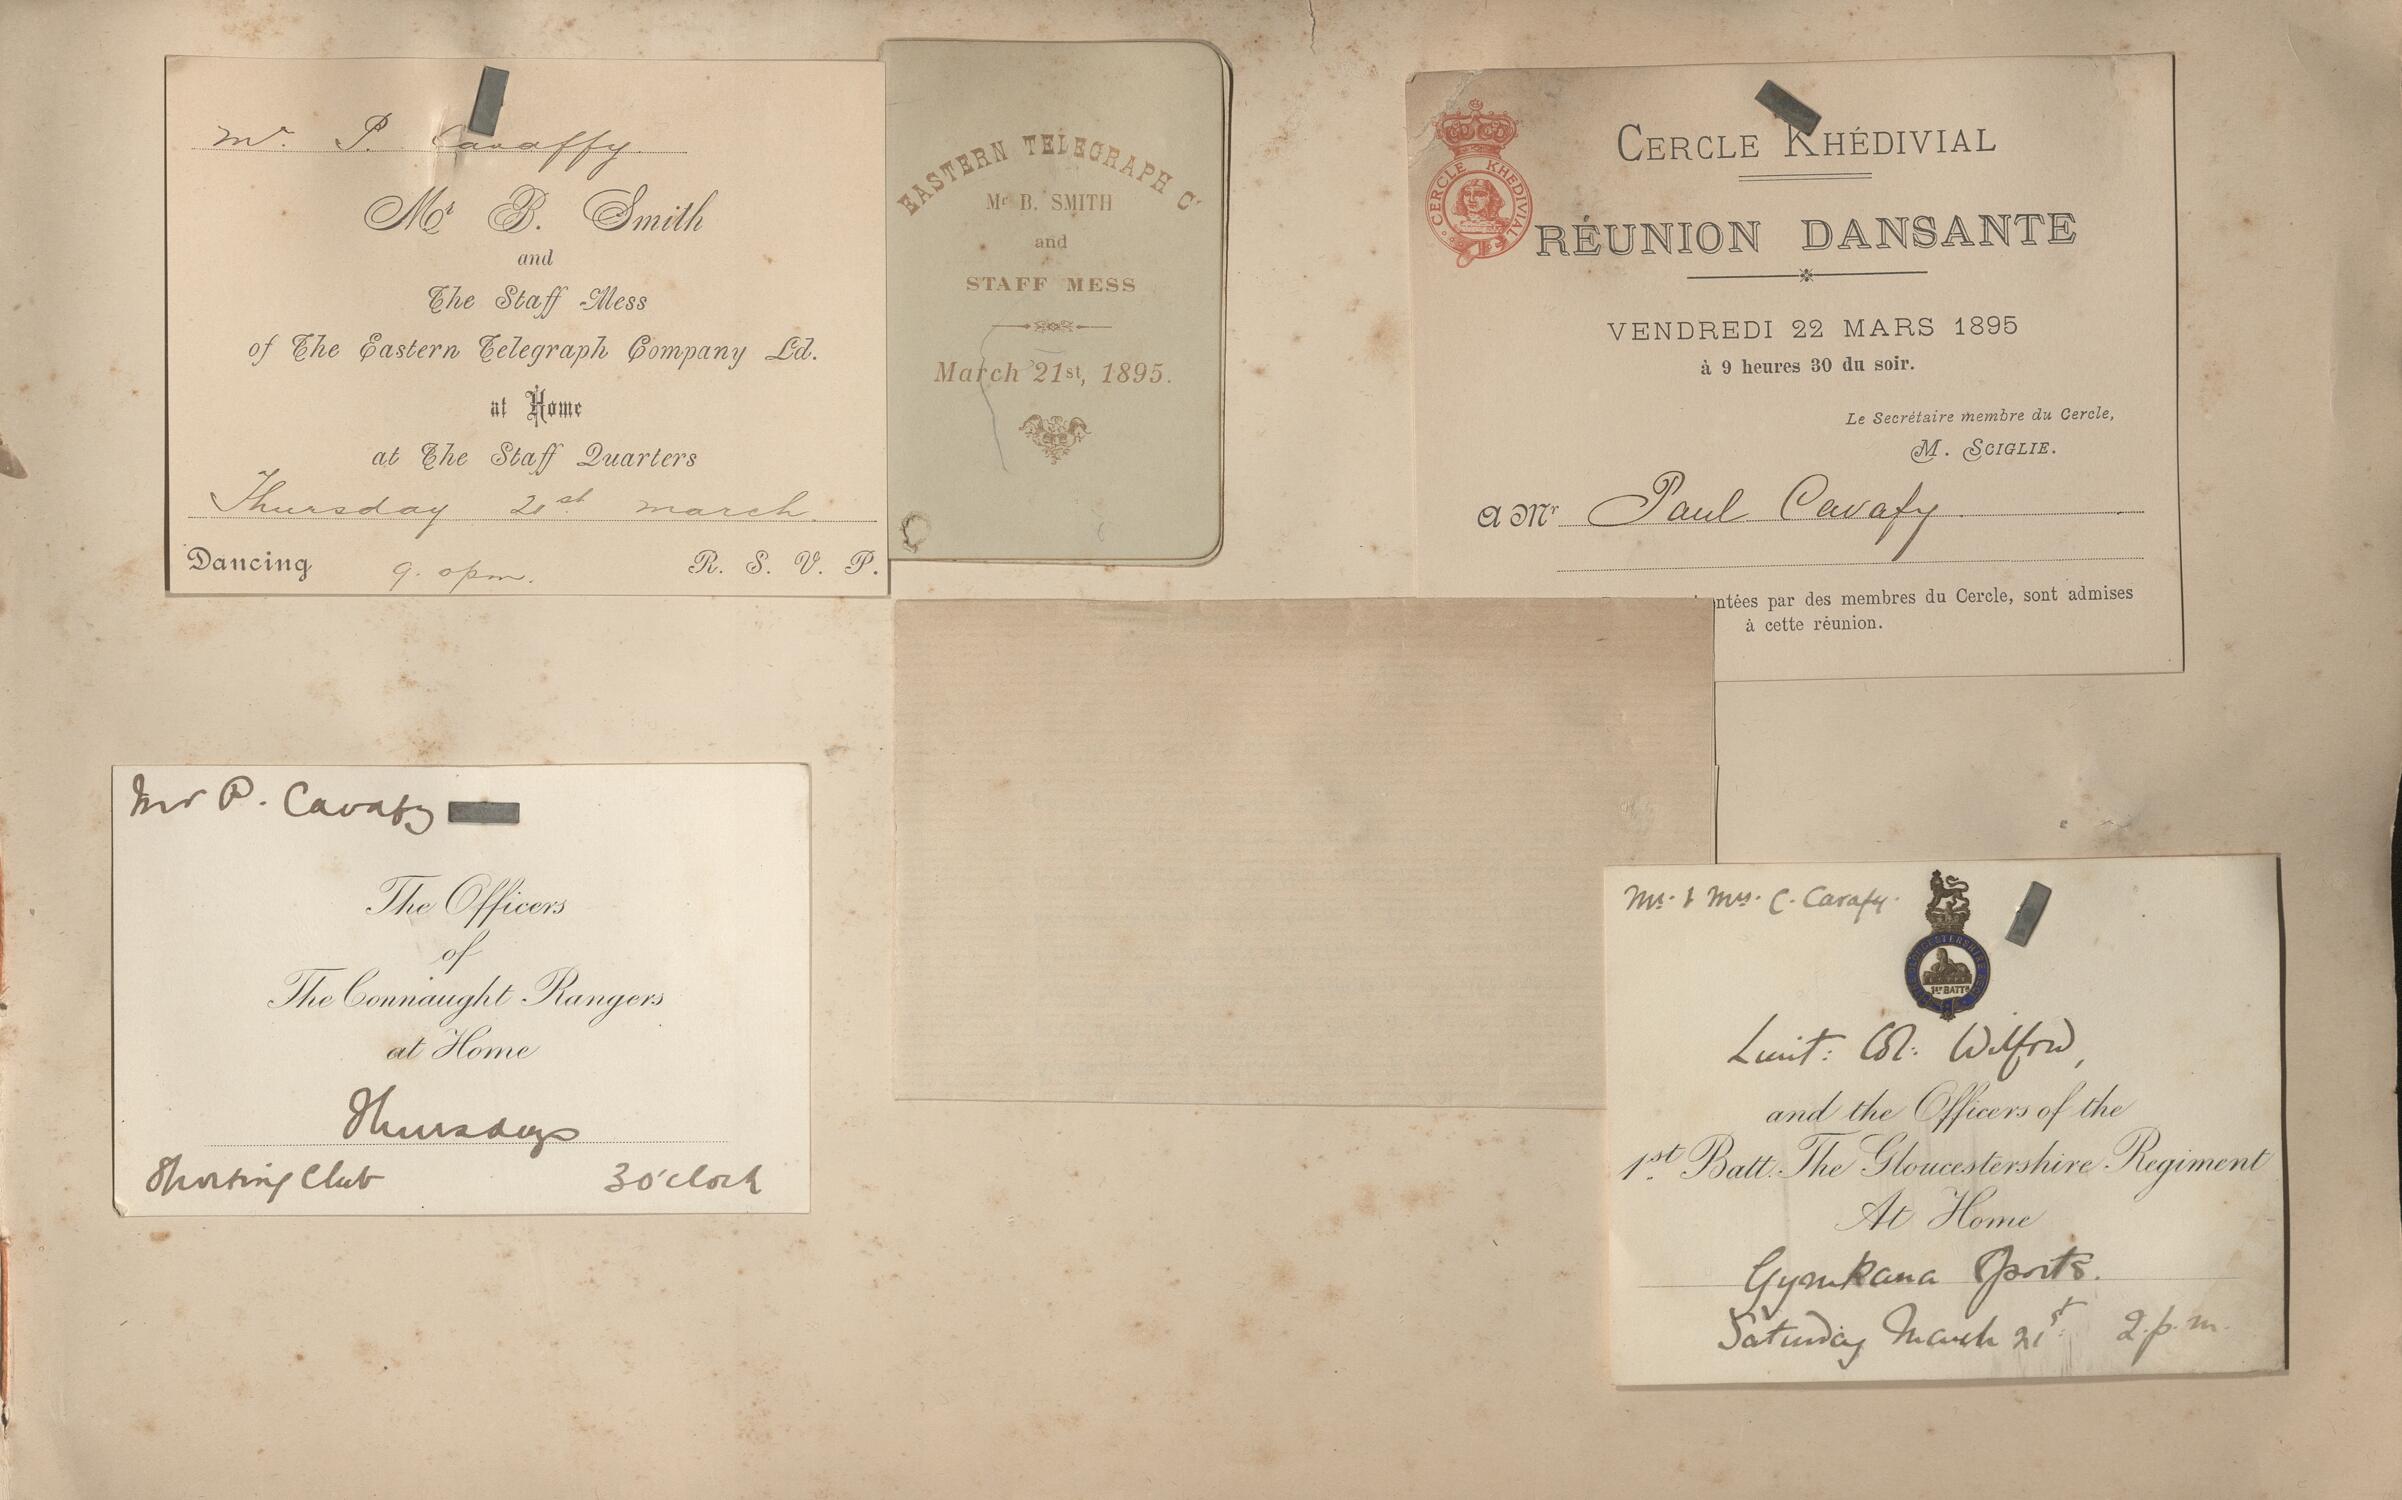 Mr. P. Cavaffy
Mr B. Smith
and
The Staff Mess
of The Eastern Telegraph Company Ld.
at Home
at The Staff Quarters
Thursday 21st march
Dancing 9. opm. R. S. V. P.
EASTERN TELEGRAPH Co
Mr B. SMITH
and
STAFF MESS
March 21st, 1895.
CERCLE KHEDIVIAL
CERCLE KHÉDIVIAL
RÉUNION DANSANTE
VENDREDI 22 MARS 1895
à 9 heures 30 du soir.
Le Secrétaire membre du Cercle,
M. SCIGLIE.
A Mr Paul Cavafy
entées par des membres du Cercle, sont admises
à cette réunion.
Mr P. Cavafy
The Officers
of
The Connaught Rangers
at Home
Thursdays
Sporting Club 3 o'clock
Mr. & Mrs. C. Cavafy.
GLOUCESTERSHIRE REGT
1ST BATTN
Lieut: Col: Wilford,
and the Officers of the
1st Batt. The Gloucestershire Regiment
At Home
Gymkana Sports.
Saturday March 21st 2.p.m.